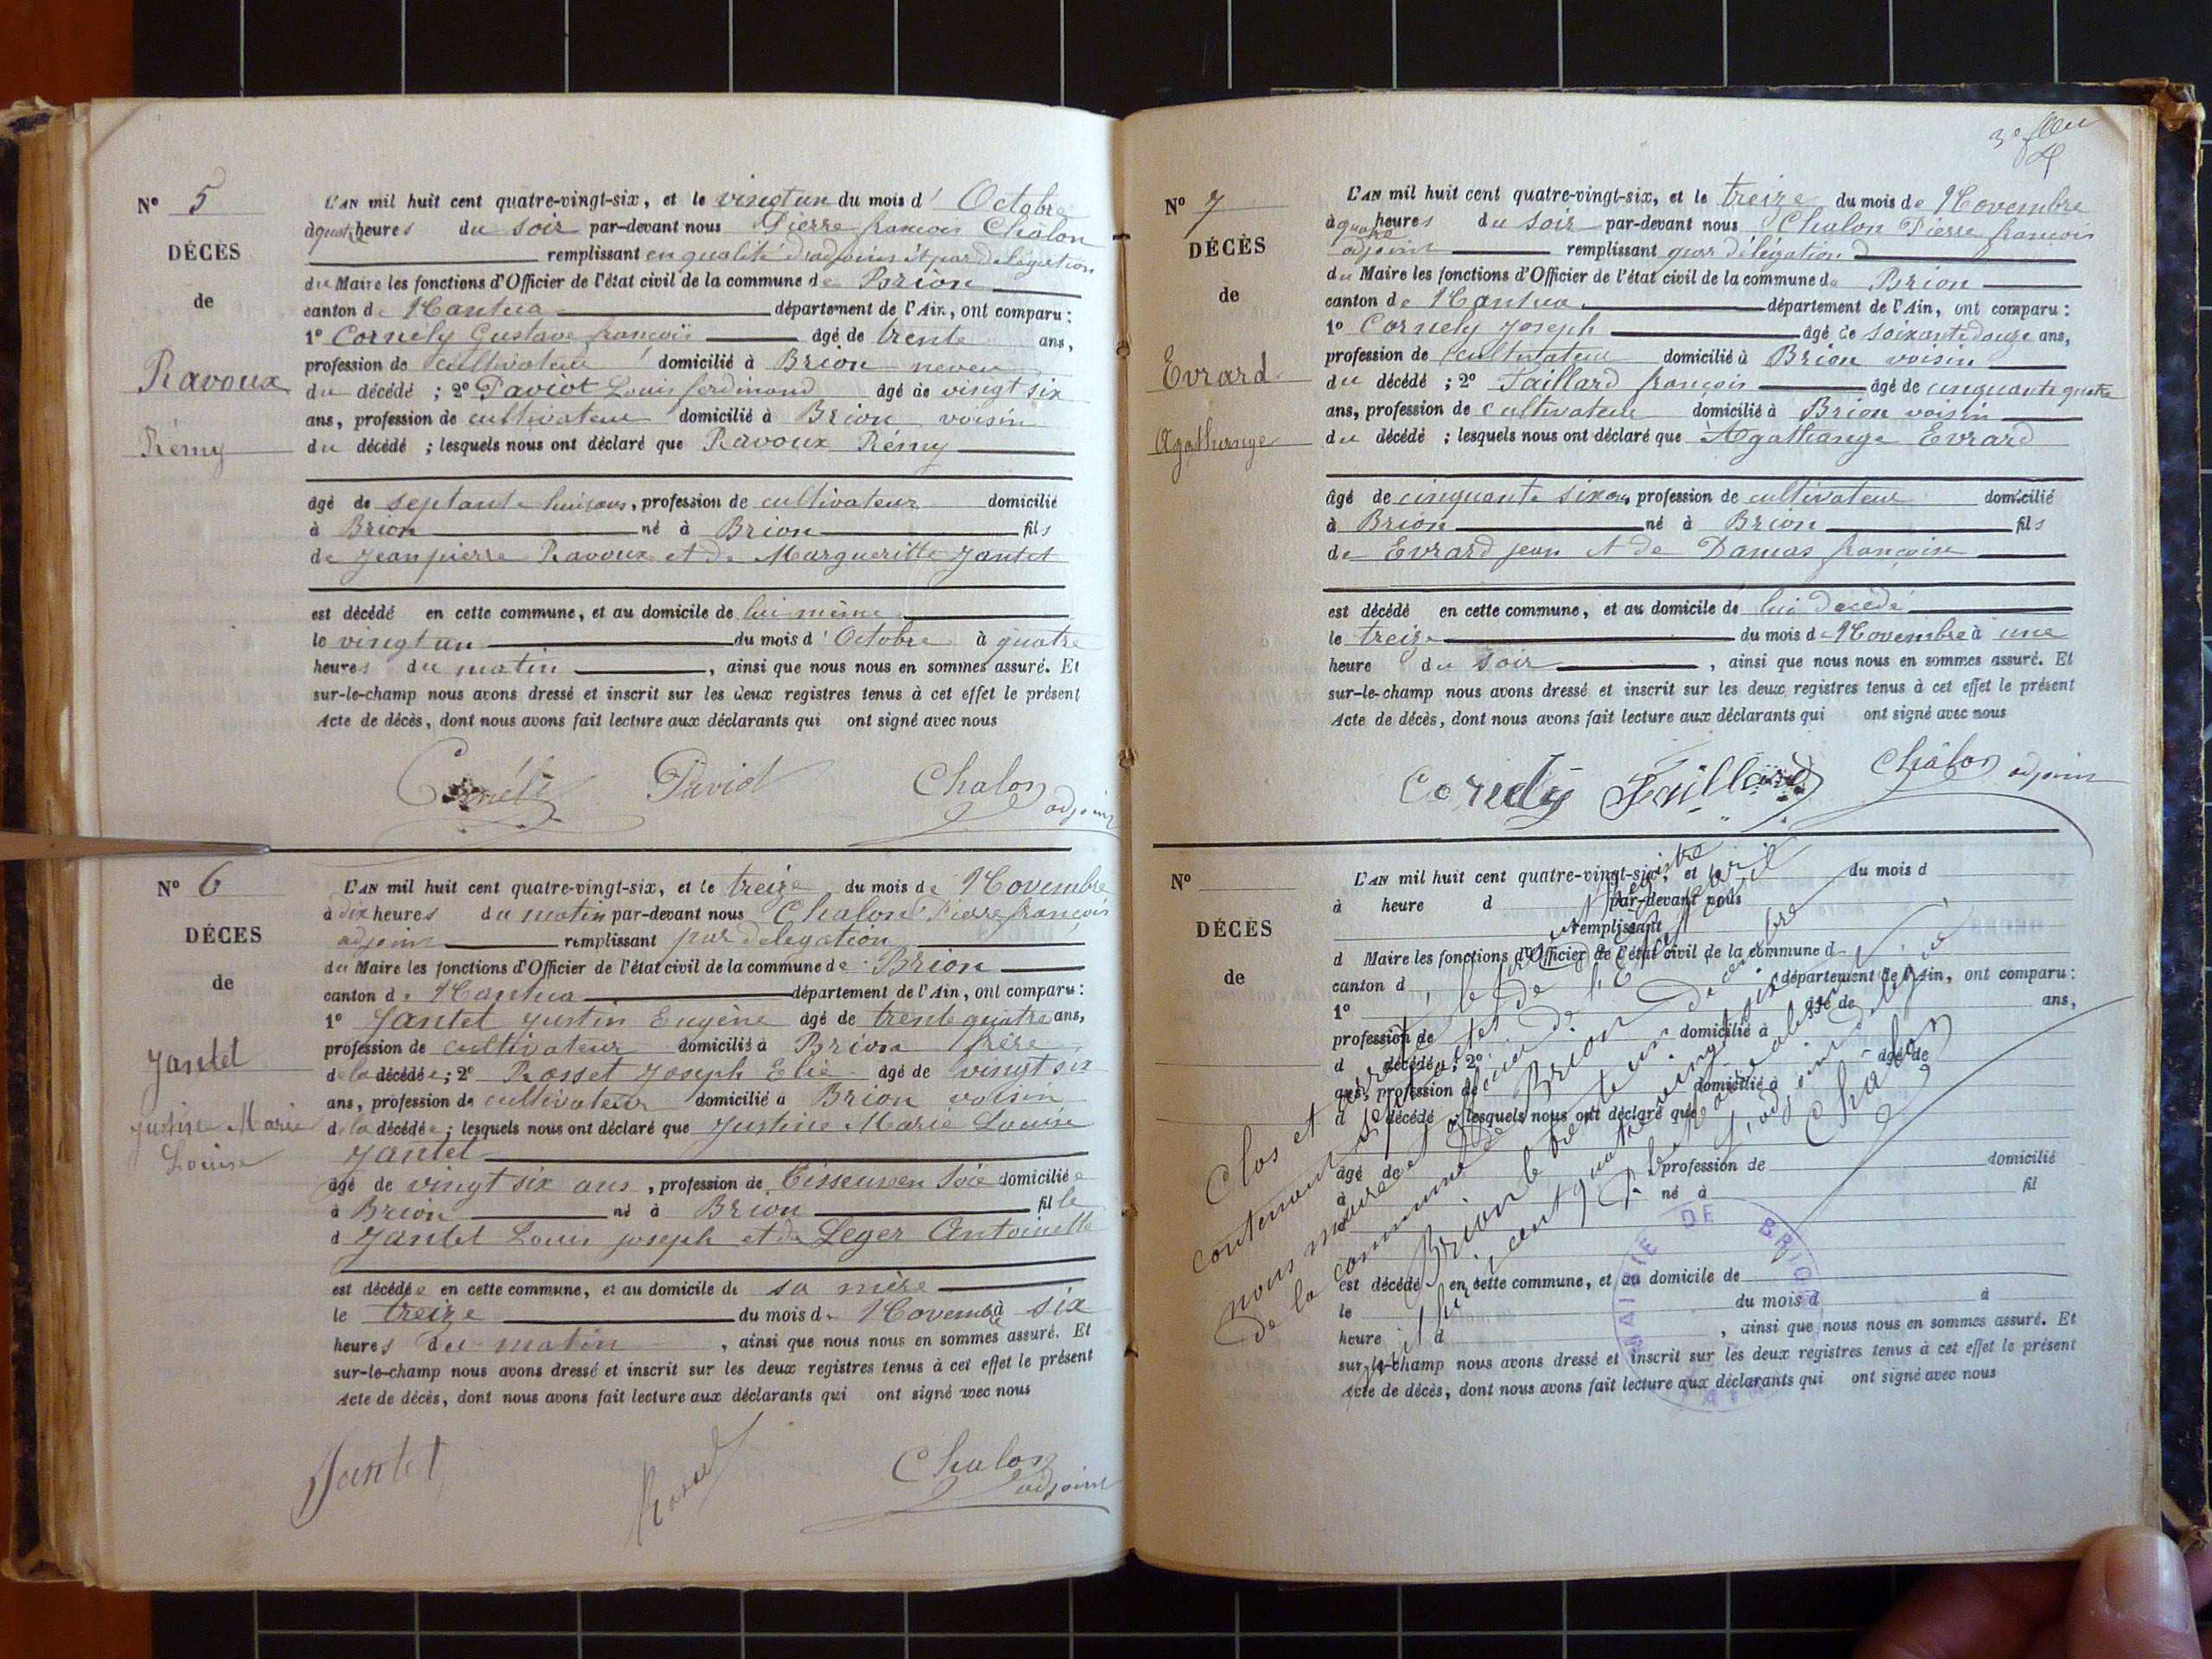 N° 5
DÉCÈS
de
Ravoux
Rémy
L'AN mil huit cent quatre-vingt-six, et le vingt un du mois d' Octobre
à quatre heures du soir par-devant nous Pierre françois Chalon
remplissant en qualité d'adjoint et par délégation
du Maire les fonctions d'Officier de l'état civil de la commune de Brion
canton de Nantua département de l'Ain, ont comparu :
1° Cornély Gustave françois âgé de trente ans,
profession de cultivateur domicilié à Brion neveu
du décédé ; 2° Paviot Louis ferdinand âgé de vingt six
ans, profession de cultivateur domicilié à Brion voisin
du décédé ; lesquels nous ont déclaré que Ravoux Rémy
âgé de septante huit ans, profession de cultivateur domicilié
à Brion né à Brion fils
de Jean pierre Ravoux et de Margueritte Jantet
est décédé en cette commune, et au domicile de lui même
le vingt un du mois d' Octobre à quatre
heures du matin , ainsi que nous nous en sommes assuré. Et
sur-le-champ nous avons dressé et inscrit sur les deux registres tenus à cet effet le présent
Acte de décès, dont nous avons fait lecture aux déclarants qui ont signé avec nous
Paviot Chalon adjoint
N° 6
DÉCES
de
Jantet
Justine Marie
Louise
L'AN mil huit cent quatre-vingt-six, et le treize du mois de Novembre
à dix heures du matin par-devant nous Chalon Pierre françois
adjoint remplissant par délégation
du Maire les fonctions d'Officier de l'état civil de la commune de Brion
canton de Nantua département de l'Ain, ont comparu :
1° Jantet Justin Eugène âgé de trente quatre ans,
profession de cultivateur domicilié à Brion frère
de la décédée ; 2° Rosset Joseph Elie âgé de vingt six
ans, profession de cultivateur domicilié à Brion voisin
de la décédée ; lesquels nous ont déclaré que Justine Marie Louise
Jantet
âgé de vingt six ans , profession de Tisseuse en Soie domiciliée
à Brion né à Brion fille
d Jantet Louis joseph et de Leger Antoinette
est décédée en cette commune, et au domicile de sa mère
le treize du mois de Novembre à six
heures du matin , ainsi que nous nous en sommes assuré. Et
sur-le-champ nous avons dressé et inscrit sur les deux registres tenus à cet effet le présent
Acte de décès, dont nous avons fait lecture aux déclarants qui ont signé avec nous
Jantet Rosset Chalon adjoint
N° 7
DÉCÈS
de
Evrard
Agathange
L'AN mil huit cent quatre-vingt-six, et le treize du mois de Novembre
à quatre heures du soir par-devant nous Chalon Pierre françois
adjoint remplissant par délégation d
du Maire les fonctions d'Officier de l'état civil de la commune de Brion
canton de Nantua département de l'Ain, ont comparu :
1° Cornely Joseph âgé de soixante douze ans,
profession de cultivateur domicilié à Brion voisin
du décédé ; 2° Taillard françois âgé de cinquante quatre
ans, profession de cultivateur domicilié à Brion voisin
du décédé ; lesquels nous ont déclaré que Agathange Evrard
âgé de cinquante six ans profession de cultivateur domicilié
à Brion né à Brion fils
de Evrard jean et de Damas françoise
est décédé en cette commune, et au domicile de lui décédé
le treize du mois de Novembre à une
heure du soir , ainsi que nous nous en sommes assuré. Et
sur-le-champ nous avons dressé et inscrit sur les deux registres tenus à cet effet le présent
Acte de décès, dont nous avons fait lecture aux déclarants qui ont signé avec nous
Cornely Taillard Chalon adjoint
N°
DÉCÈS
de
L'AN mil huit cent quatre-vingt-six, et le du mois d
à heure d par-devant nous
remplissant
d Maire les fonctions d'Officier de l'état civil de la commune d
canton d département de l'Ain, ont comparu :
1° âgé de ans,
profession de domicilié à
d décédé ; 2° âgé de
ans, profession de domicilié à
d décédé ; lesquels nous ont déclaré que
âgé de profession de domicilié
à né à fil
est décédé en cette commune, et au domicile de
le du mois d à
heure d , ainsi que nous nous en sommes assuré. Et
sur-le-champ nous avons dressé et inscrit sur les deux registres tenus à cet effet le présent
Acte de décès, dont nous avons fait lecture aux déclarants qui ont signé avec nous
Clos et le présent Registre
contenant sept actes de
nous maire et officier de l'Etat civil
de la commune de Brion
Brion le trente un Décembre
mil huit cent quatre vingt six
Chalon
MAIRIE DE BRION
AIN